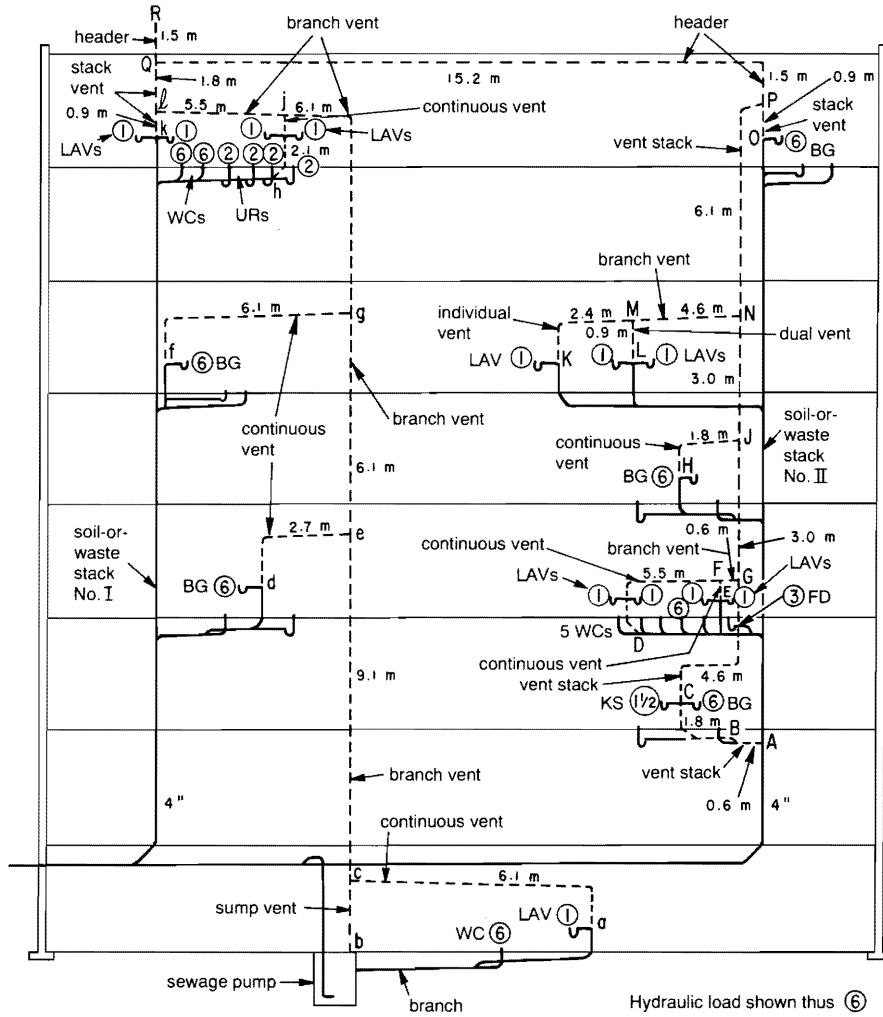 R
header
1.5 m
branch vent
header
Q
stack
vent
1.8 m
15.2 m
1.5 m
0.9 m
P
stack
vent
ℓ
5.5 m
j
6.1 m
continuous vent
0.9 m
k
1
1
1
1
LAVs
LAVs
vent stack
O
6
BG
6
6
2
2
2
2.1 m
2
h
WCs
URs
6.1 m
branch vent
6.1 m
g
individual
vent
2.4 m
M
4.6 m
N
0.9 m
dual vent
f
6
BG
LAV
1
K
1
L
1
LAVs
3.0 m
continuous
vent
branch vent
1.8 m
J
soil-or-
waste
stack
No. II
continuous
vent
H
BG
6
6.1 m
soil-or-
waste
stack
No. I
2.7 m
e
0.6 m
3.0 m
continuous vent
branch vent
BG
6
d
LAVs
5.5 m
F
G
LAVs
1
1
1
E
1
6
3
FD
5 WCs
D
continuous vent
vent stack
4.6 m
9.1 m
KS
1½
C
6
BG
1.8 m
B
A
vent stack
branch vent
0.6 m
4"
4"
continuous vent
c
6.1 m
sump vent
LAV
1
a
WC
6
b
sewage pump
branch
Hydraulic load shown thus 6